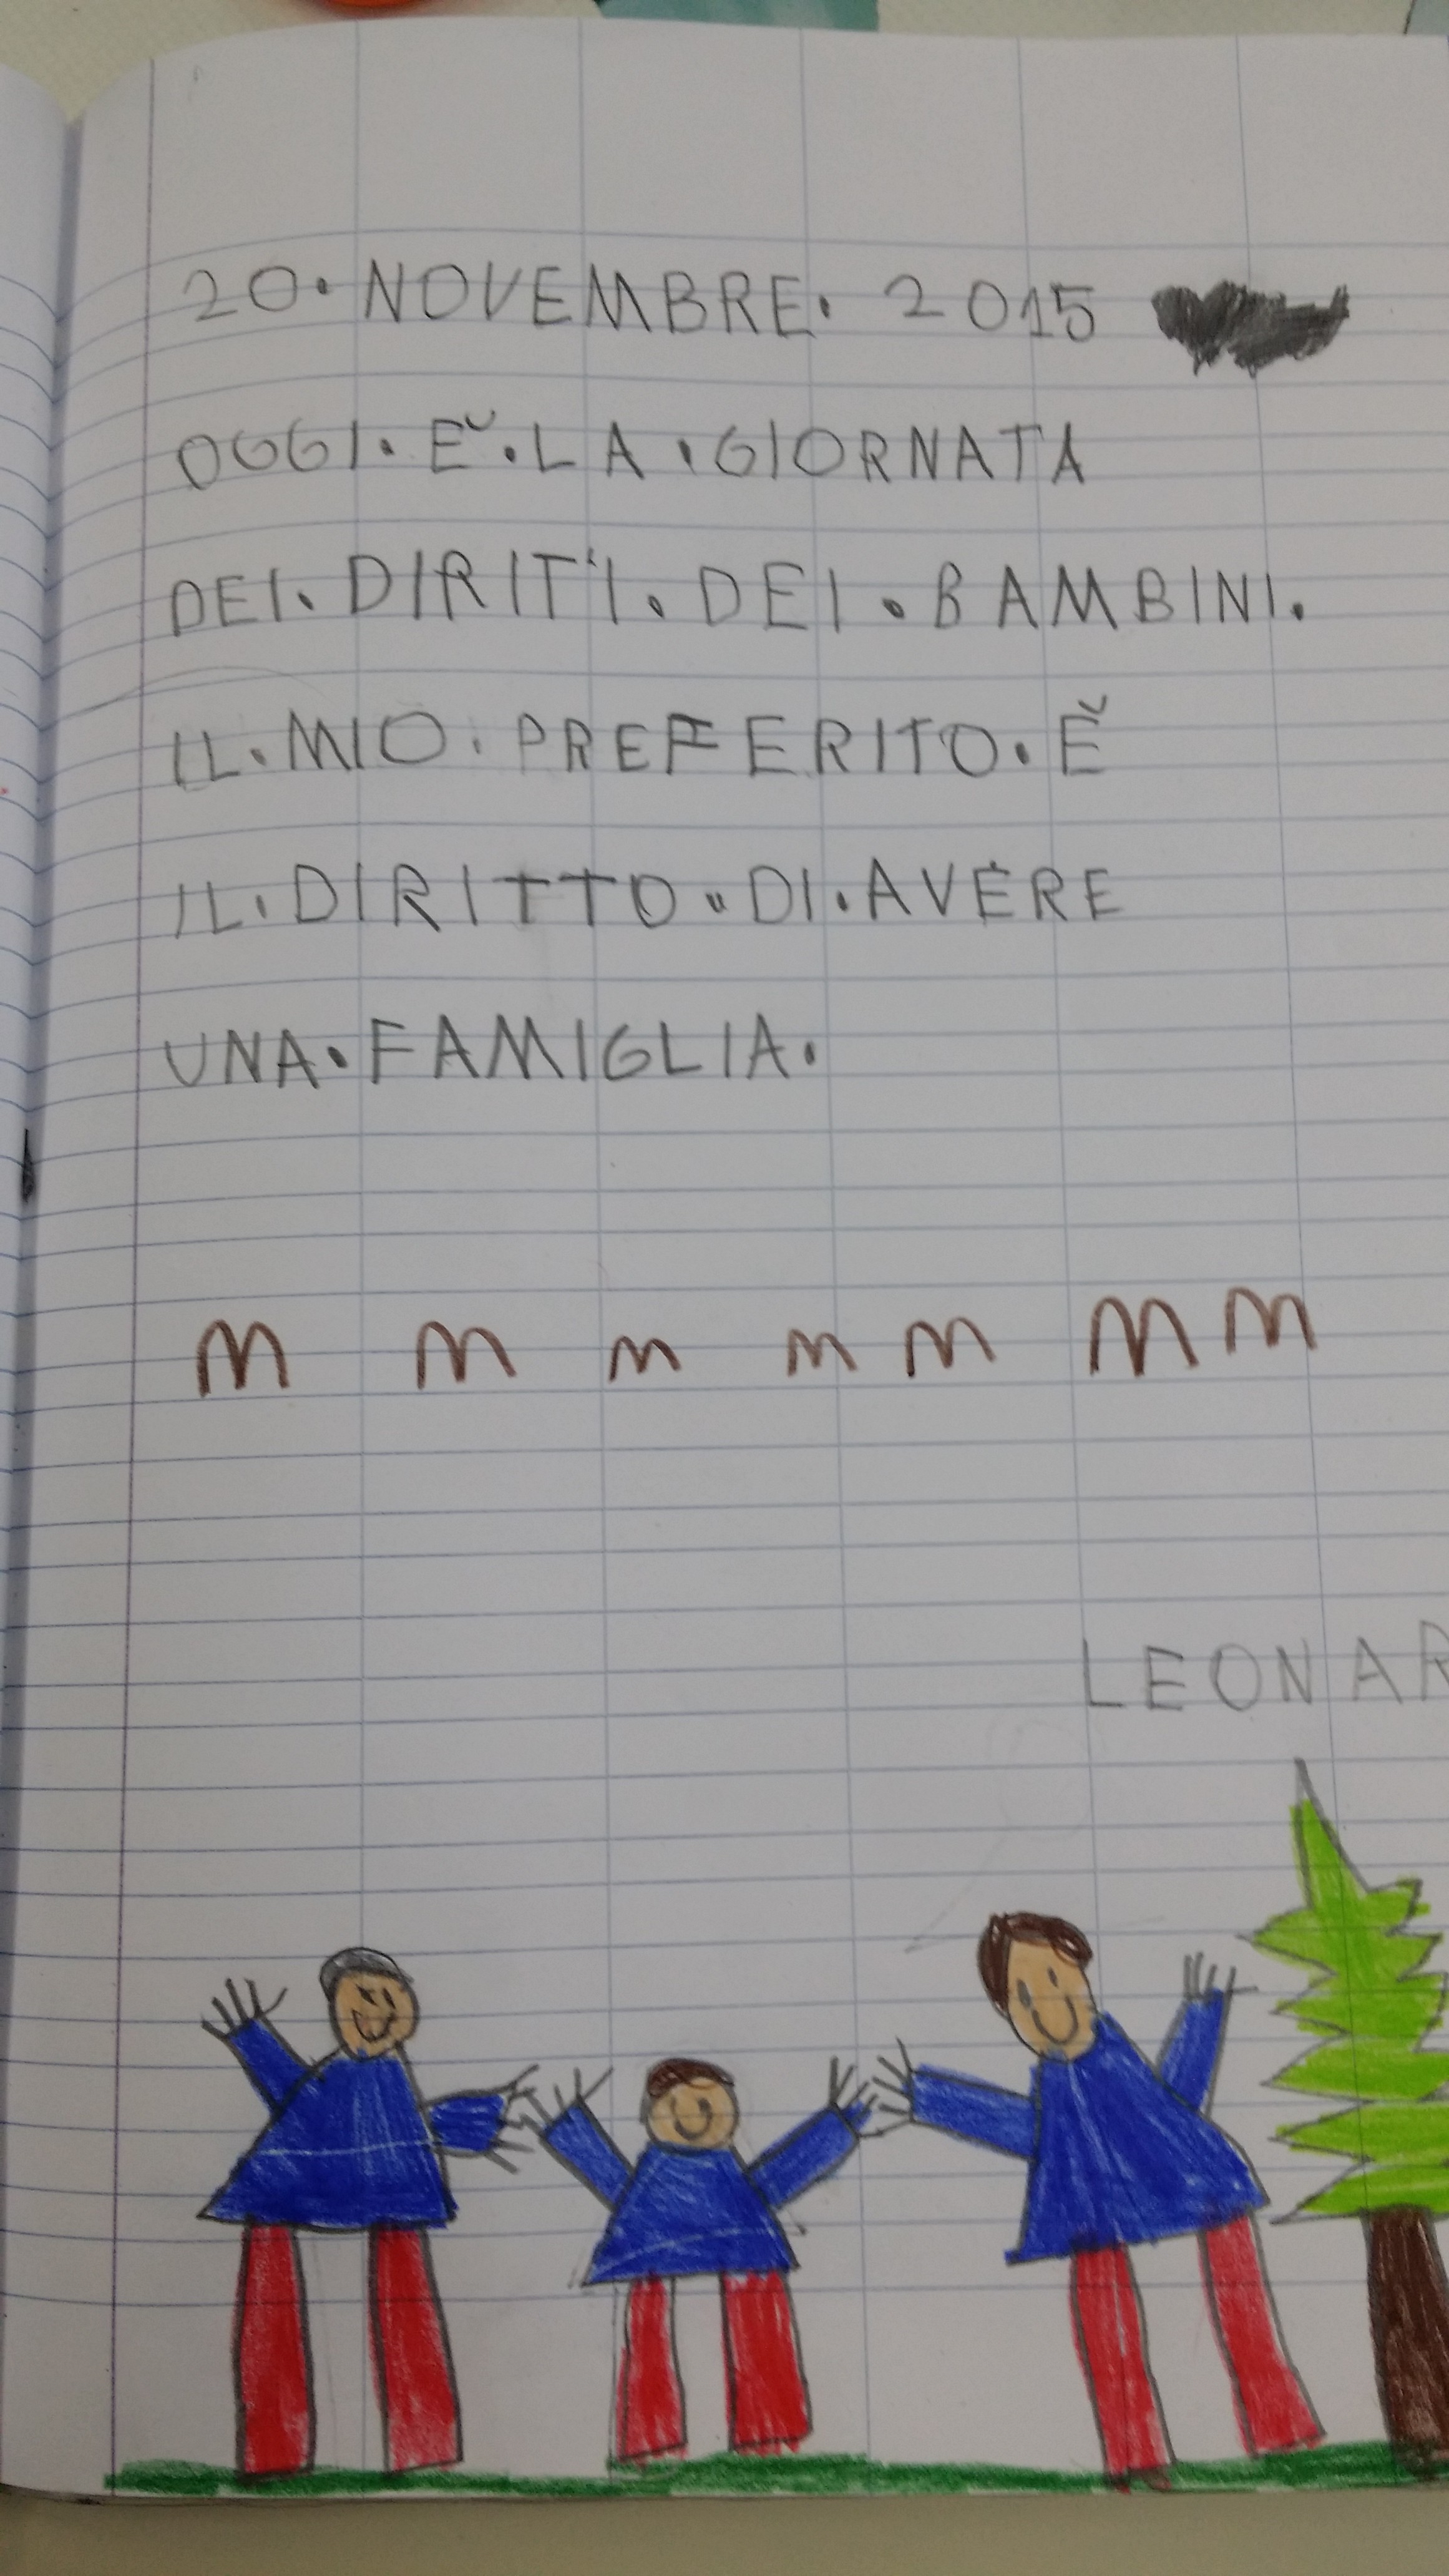 20·NOVEMBRE·2015
OGGI·Ě·LA·GIORNATA
DEI·DIRITTI·DEI·BAMBINI.
IL·MIO·PREFERITO·Ě
IL·DIRITTO·DI·AVERE
UNA·FAMIGLIA.
LEONAR